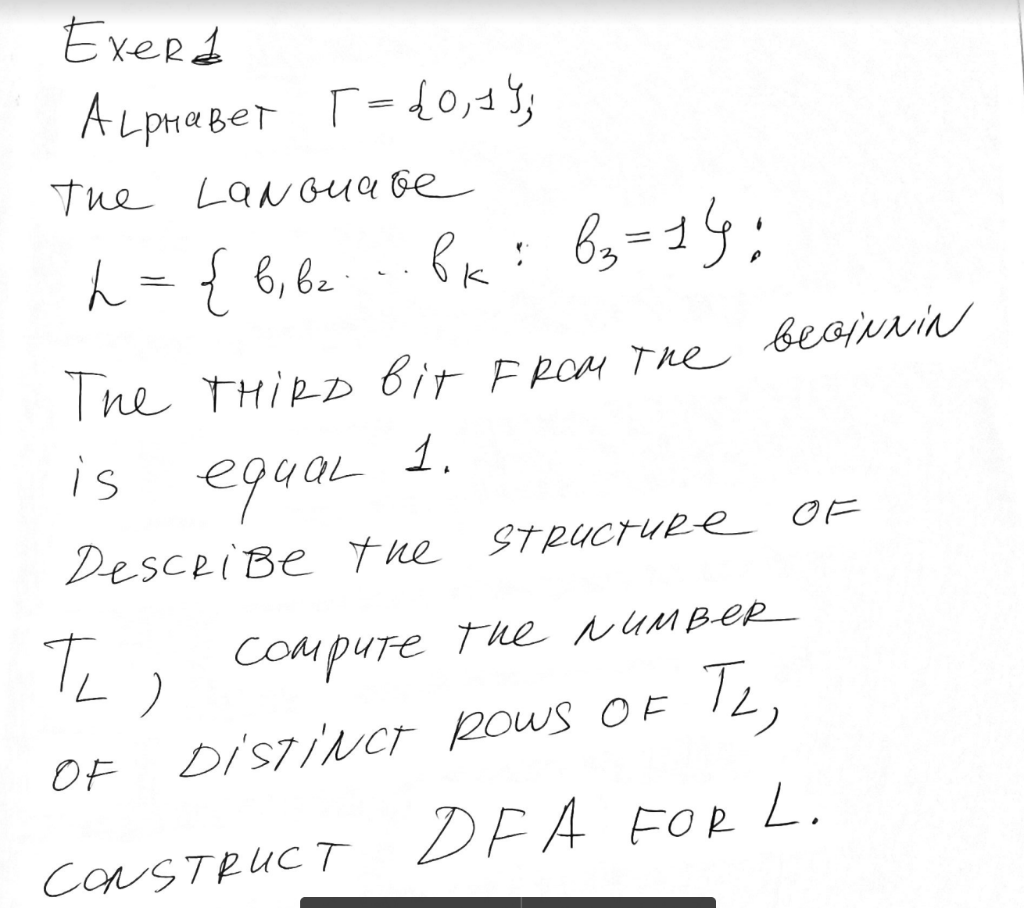 Exer 1
Alphabet Γ = {0,1};
The Language
L = { b₁b₂ ... bₖ : b₃=1};
The third bit from the beginnin
is equal 1.
Describe the structure of
T_L, compute the number
of distinct rows of T_L,
construct DFA for L.